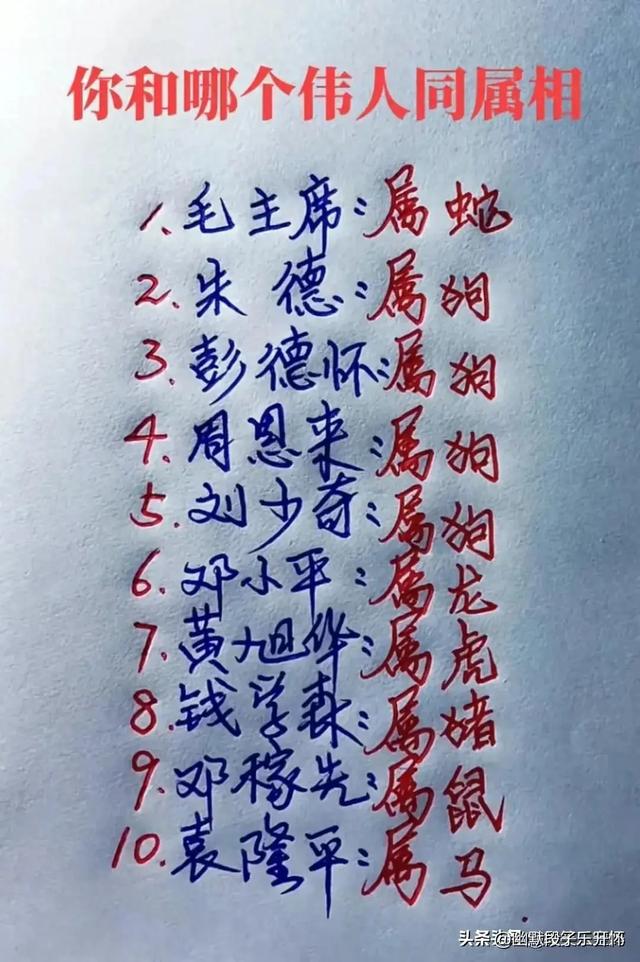 你和哪个伟人同属相
1、毛主席:属蛇
2、朱德:属狗
3、彭德怀:属狗
4、周恩来:属狗
5、刘少奇:属狗
6、邓小平:属龙
7、黄旭华:属虎
8、钱学森:属猪
9、邓稼先:属鼠
10、袁隆平:属马
头条 @幽默段子乐开怀